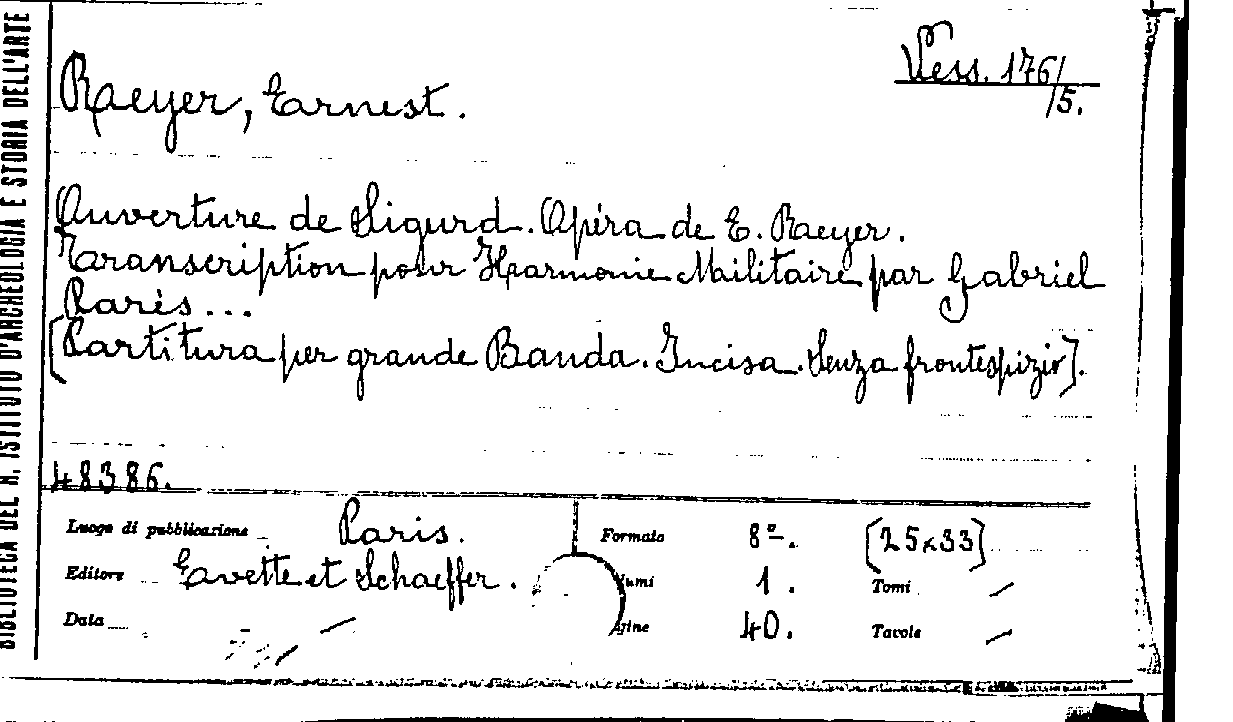 BIBLIOTECA DEL R. ISTITUTO D'ARCHEOLOGIA E STORIA DELL'ARTE
Vess. 176/
/5.
Raeyer, Ernest.
Ouverture de Sigurd. Opéra de E. Raeyer.
Transcription pour Harmonie Militaire par Gabriel
Parès...
[Partitura per grande Banda. Incisa. Senza frontespizio].
48386.
Luogo di pubblicazione Paris.
Formato 8º. [25x33]
Editore Eavette et Schaeffer.
lumi 1. Tomi /
Data /
gine 40. Tavole /